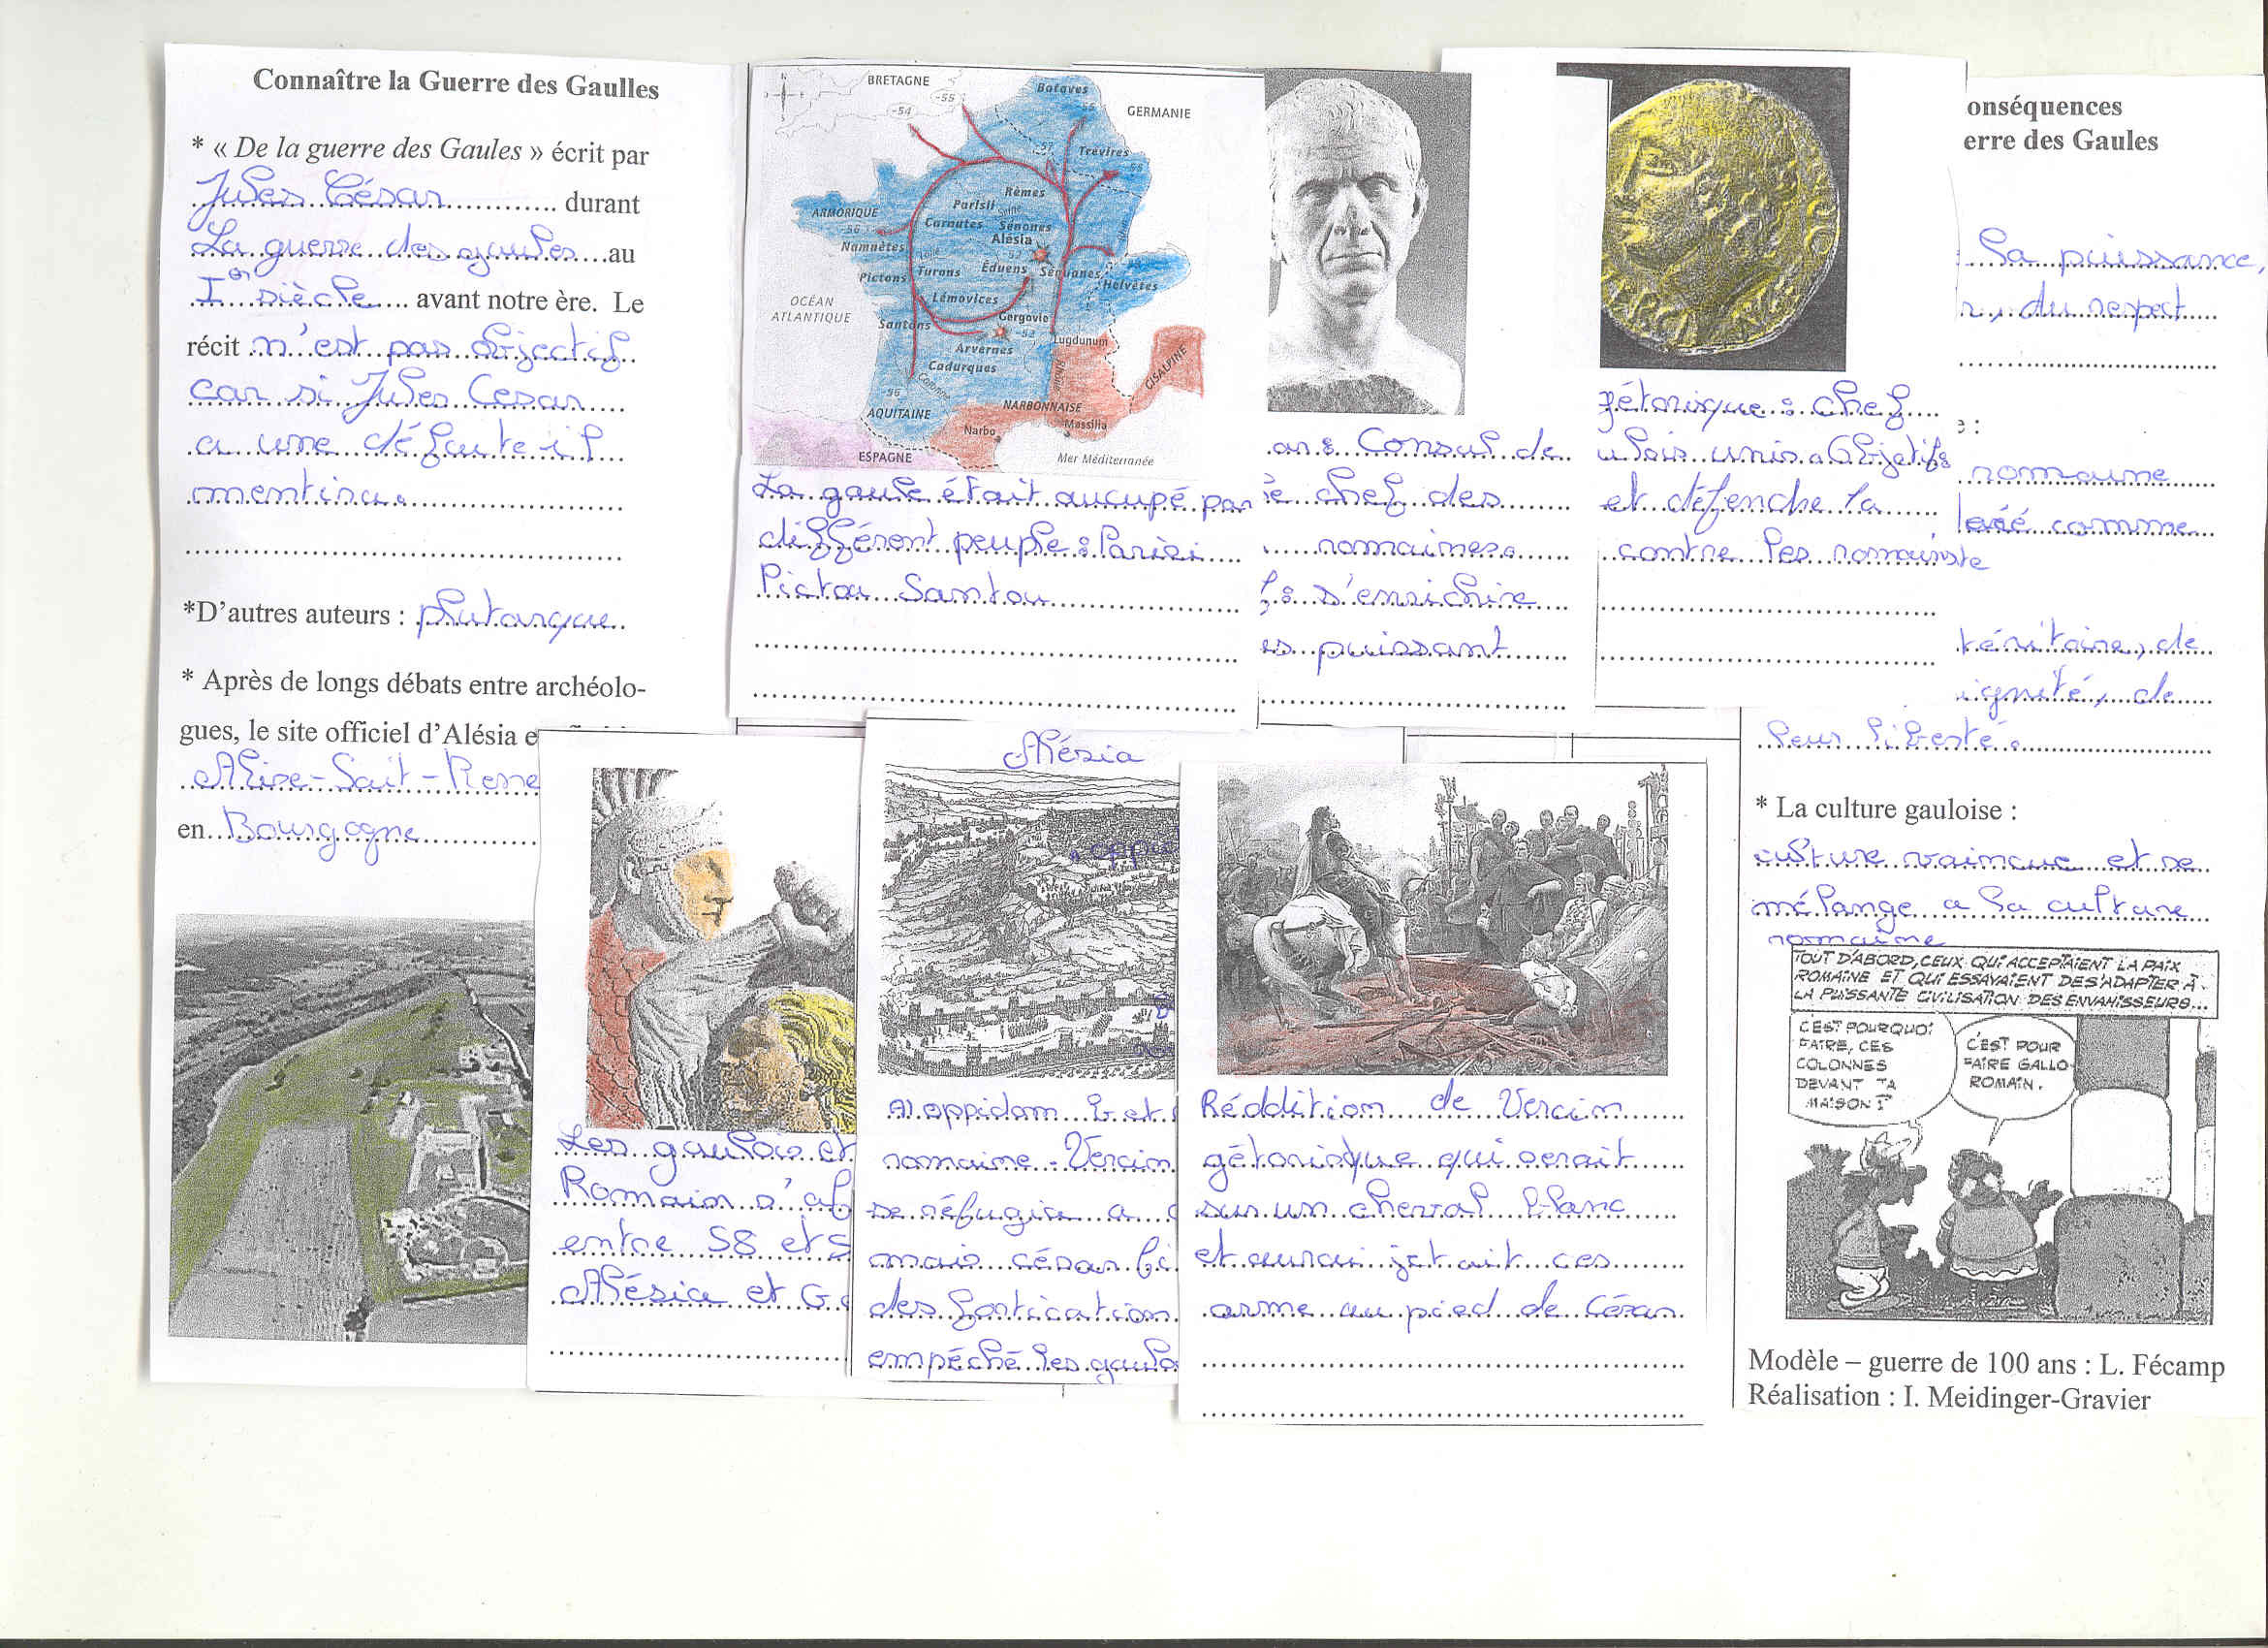 Connaître la Guerre des Gaulles
* « De la guerre des Gaules » écrit par
Jules César durant
La guerre des gaules au
Ier siècle avant notre ère. Le
récit n'est pas objectif
car si Jules Cesar
a une défaite il
mentira.
*D'autres auteurs : plutarque
* Après de longs débats entre archéolo-
gues, le site officiel d'Alésia e
Alise-Sait-Rene
en Bourgogne
BRETAGNE
-54
-55
Bataves
-55
GERMANIE
-57
Trévires
-55
Rèmes
Parisii
Seine
ARMORIQUE
Carnutes
Sénones
-56
Alésia
Namnètes
Loire
-52
Pictons
Turons
Éduens
Séquanes
Helvètes
Lémovices
OCÉAN
ATLANTIQUE
Santons
Gergovie
-53
Arvernes
Lugdunum
Cadurques
Rhône
CISALPINE
Garonne
-56
NARBONNAISE
AQUITAINE
Narbo
Massilia
ESPAGNE
Mer Méditerranée
La gaule était aucupé par
différent peuple : Parisi
Pictou Santou
ar : Consul de
e chef des
romaines.
f : s'enrichire
es puissant
gétorisque : chef
ulois unis. Objetifs
et défenche la
contre les romainste
onséquences
erre des Gaules
la puissance,
r, du respect
e :
romaine
levée comme
téritoire, de
ignité, de
leur liberté.
* La culture gauloise :
culture vaincue et se
mélange a la culture
romaine
TOUT D'ABORD, CEUX QUI ACCEPTAIENT LA PAIX
ROMAINE ET QUI ESSAYAIENT DE S'ADAPTER À
LA PUISSANTE CIVILISATION DES ENVAHISSEURS...
C'EST POURQUOI
FAIRE, CES
COLONNES
DEVANT TA
MAISON ?
C'EST POUR
FAIRE GALLO
ROMAIN.
Modèle – guerre de 100 ans : L. Fécamp
Réalisation : I. Meidinger-Gravier
Les gaulois et
Romain s'af
entre 58 et 5
Alésia et G
Alésia
A) oppidom
romaine. Vercin
se réfugire a
mais césar
des fortication
empéché les gaulo
Réddition de Vercin
gétorisque qui serait
sur un cheval blanc
et aurai jetait ces
arme au pied de César